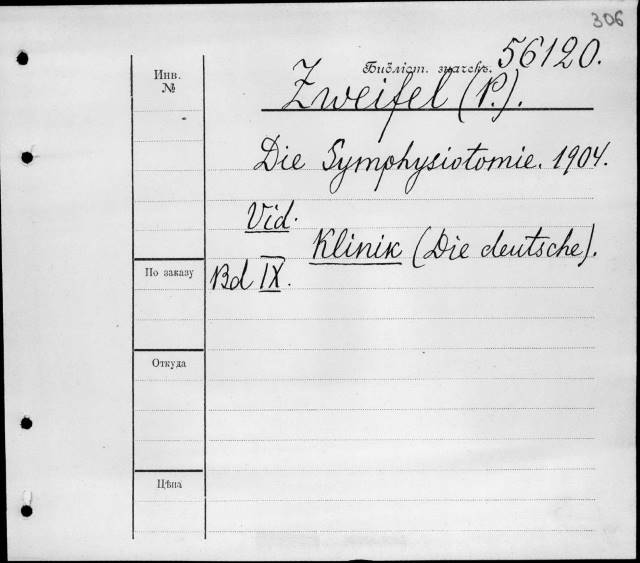 306
Инв. №
Библіот. значекъ. 56120.
Zweifel (P.).
Die Symphysiotomie. 1904.
Vid.
Klinik (Die deutsche).
По заказу
Bd IX.
Откуда
Цѣна